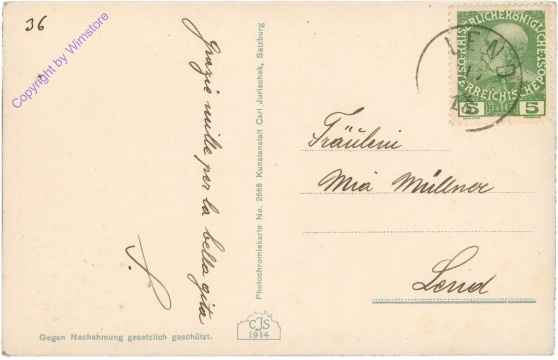 36
Copyright by Wimstore
Grazie mille per la bella gita
S.
Photochromiekarte No. 2668 Kunstanstalt Carl Jurischek, Salzburg
Gegen Nachahmung gesetzlich geschützt.
CJS
1914
KAISERLICHE KÖNIGLICHE
ÖSTERREICHISCHE
5 5
LEND
Fräulein
Mia Müllner
Lend